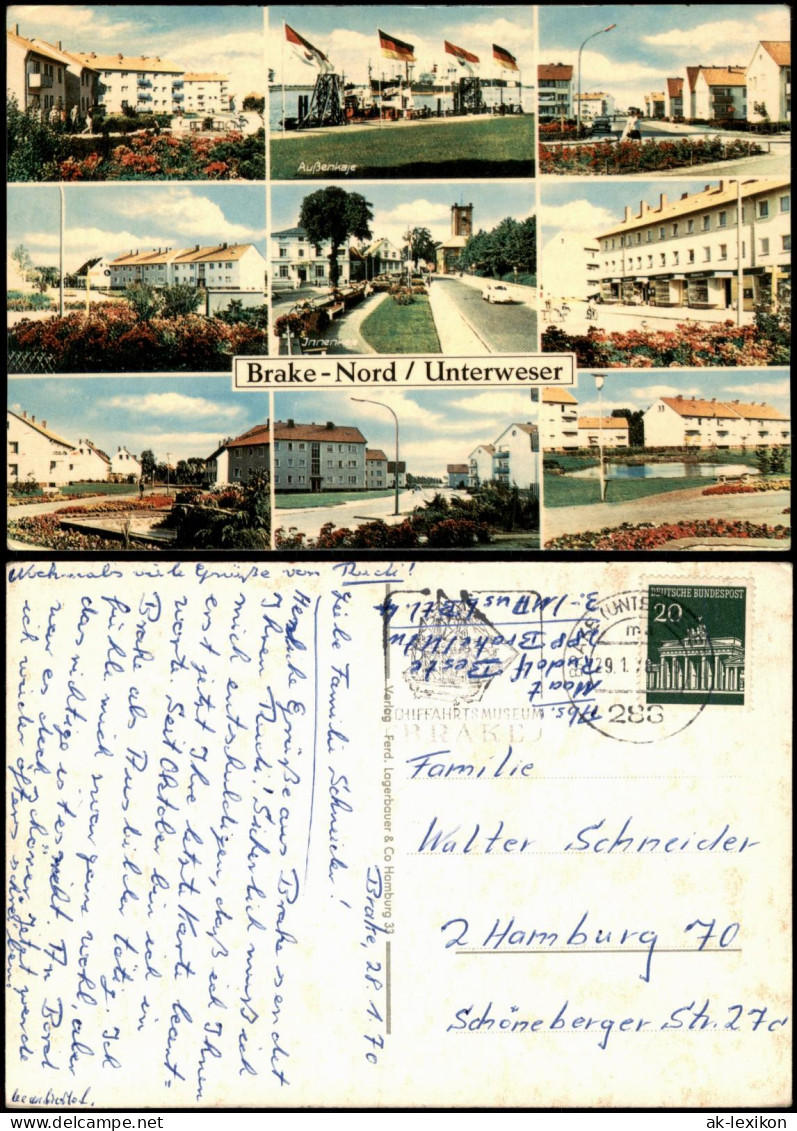 Außenkaje
Innenkaje
Brake-Nord / Unterweser
Nochmals viele Grüße von Rudi!
Brake, 28.1.70
Liebe Familie Schneider!
Herzliche Grüße aus Brake sendet
Ihnen Rudi! Sicherlich muß ich
mich entschuldigen, daß ich Ihnen
erst jetzt Ihre letzte Karte beant=
worte. Seit Oktober bin ich in
Brake als Ausbilder tätig. Ich
fühle mich zwar ganz wohl, aber
das richtige ist es nicht. An Bord
war es doch schöner. Jetzt werde
ich wieder öfters schreiben.
Verlag Ferd. Lagerbauer & Co Hamburg 33
Abs.:
Maat
Rudolf Beste
288 Brake/Untw
SCHIFFAHRTSMUSEUM
BRAKE
BRAKE (UNTER
29.1.70
288
DEUTSCHE BUNDESPOST
20
Familie
Walter Schneider
2 Hamburg 70
Schöneberger Str. 27d
ak-lexikon
ak-lexikon.com